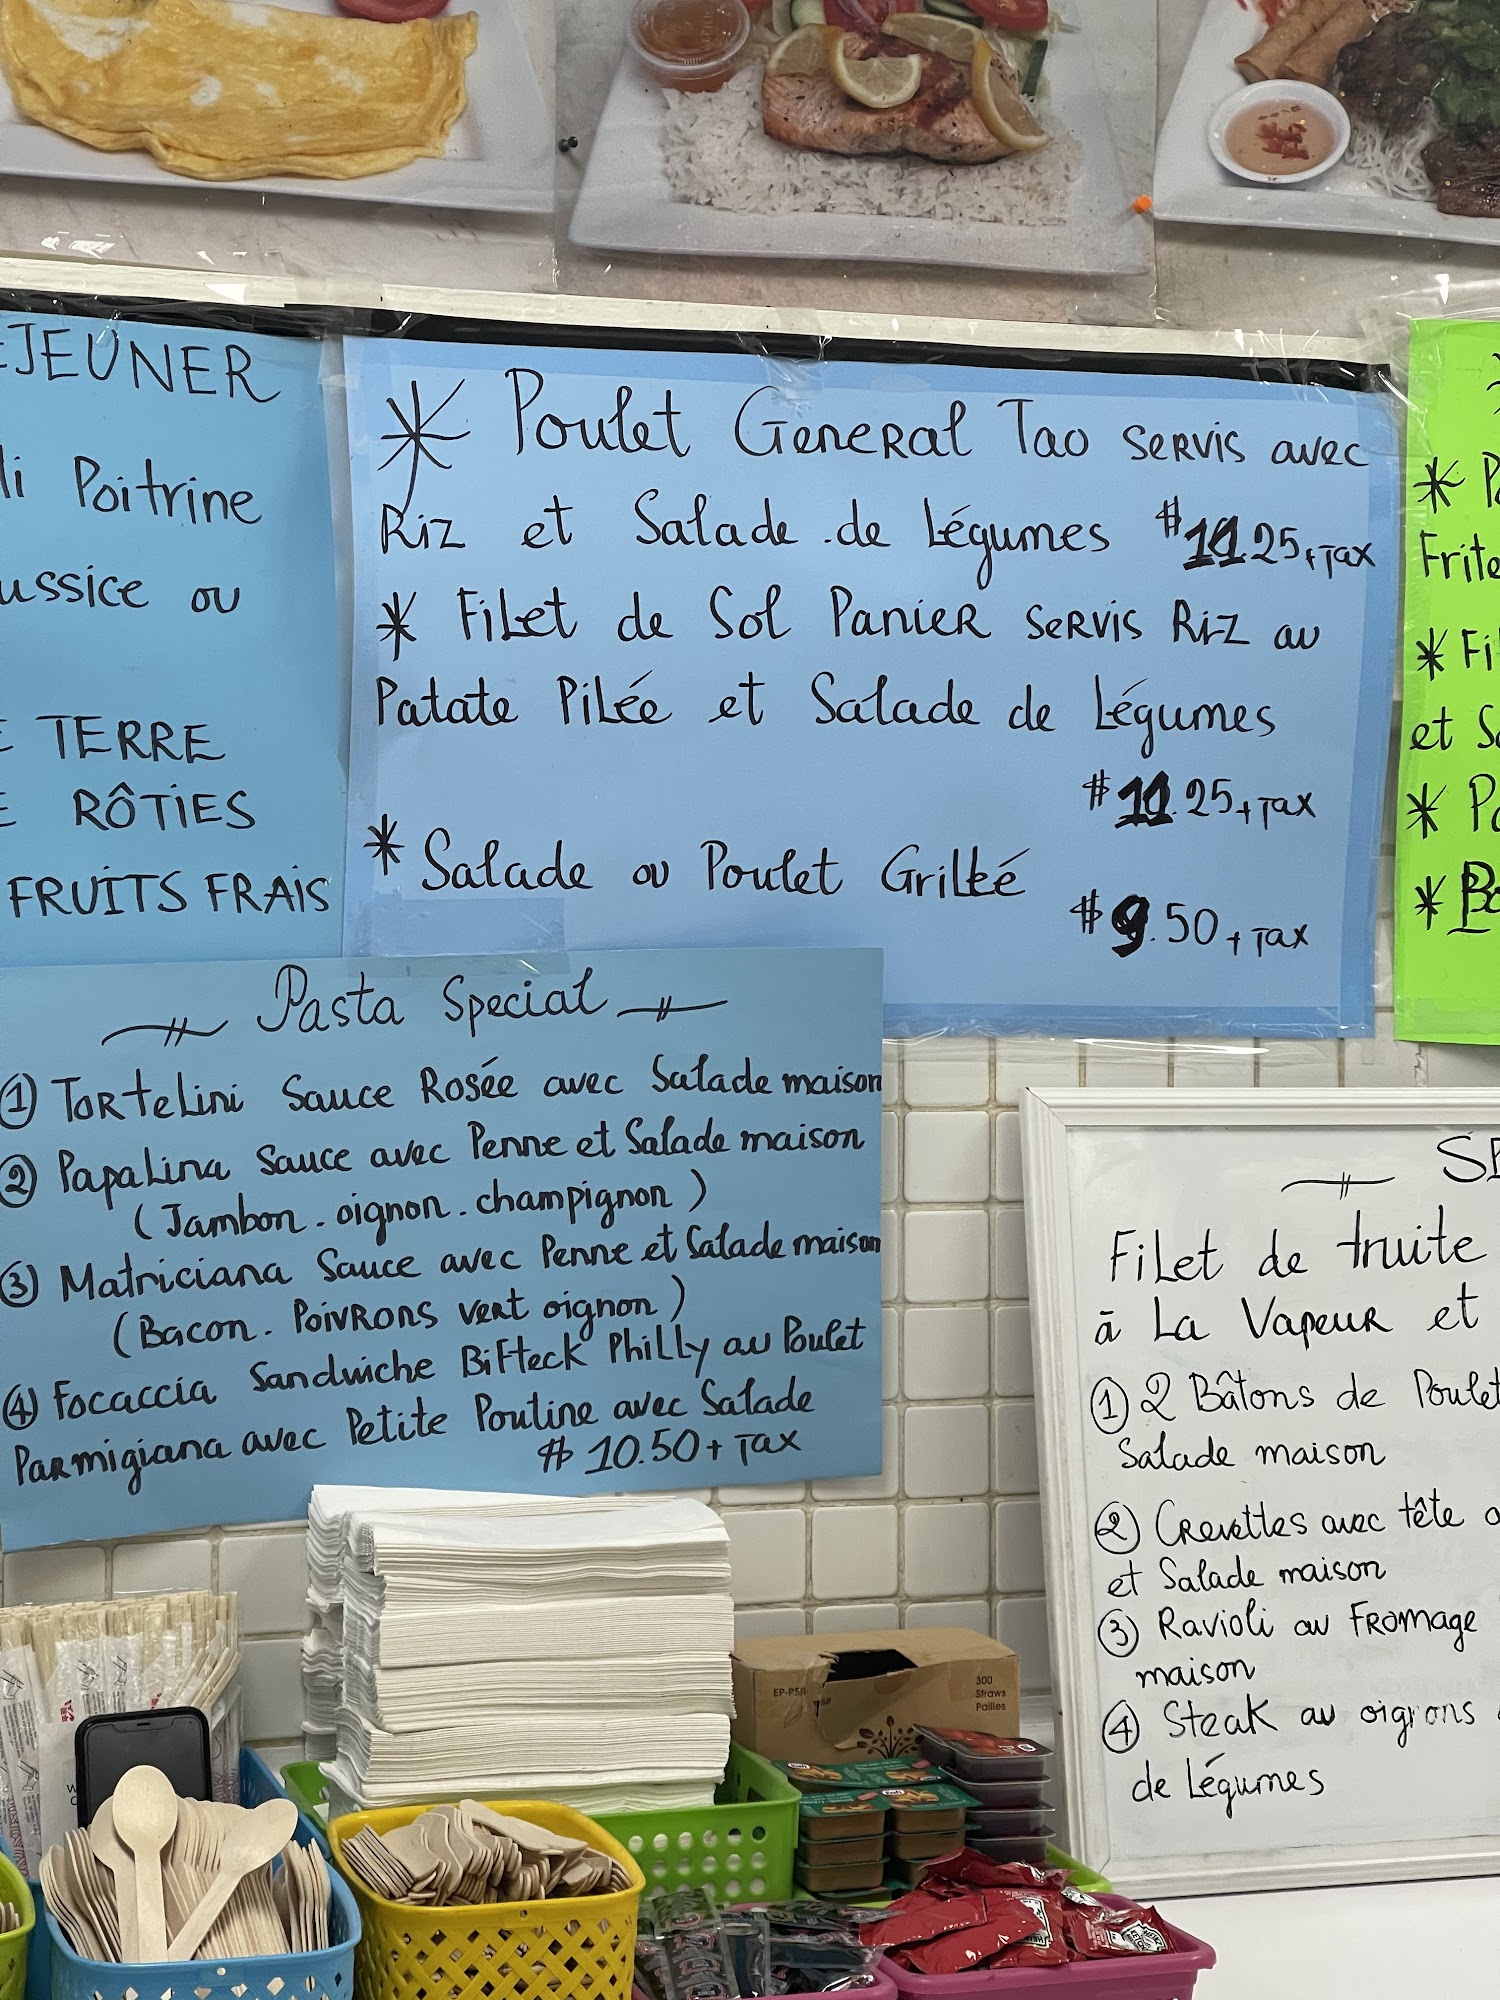 JEUNER
li Poitrine
ussice ou
TERRE
RÔTIES
FRUITS FRAIS
* Poulet General Tao servis avec
Riz et Salade de Légumes $11.25+Tax
* Filet de Sol Panier servis Riz au
Patate Pilée et Salade de Légumes
$11.25+Tax
* Salade ou Poulet Grillé
$9.50+Tax
* P
Frite
* Fi
et Sa
* Po
*
Pasta Special
① Tortelini Sauce Rosée avec Salade maison
② Papalina Sauce avec Penne et Salade maison
(Jambon.oignon.champignon)
③ Matriciana Sauce avec Penne et Salade maison
(Bacon. Poivrons vert oignon)
④ Focaccia Sandwiche Bifteck Philly au Poulet
Parmigiana avec Petite Poutine avec Salade
$10.50+Tax
Filet de truite
à La Vapeur et
① 2 Bâtons de Poulet
Salade maison
② Crevettes avec tête
et Salade maison
③ Ravioli au Fromage
maison
④ Steak au oignons
de Légumes
300
Straws
Pailles